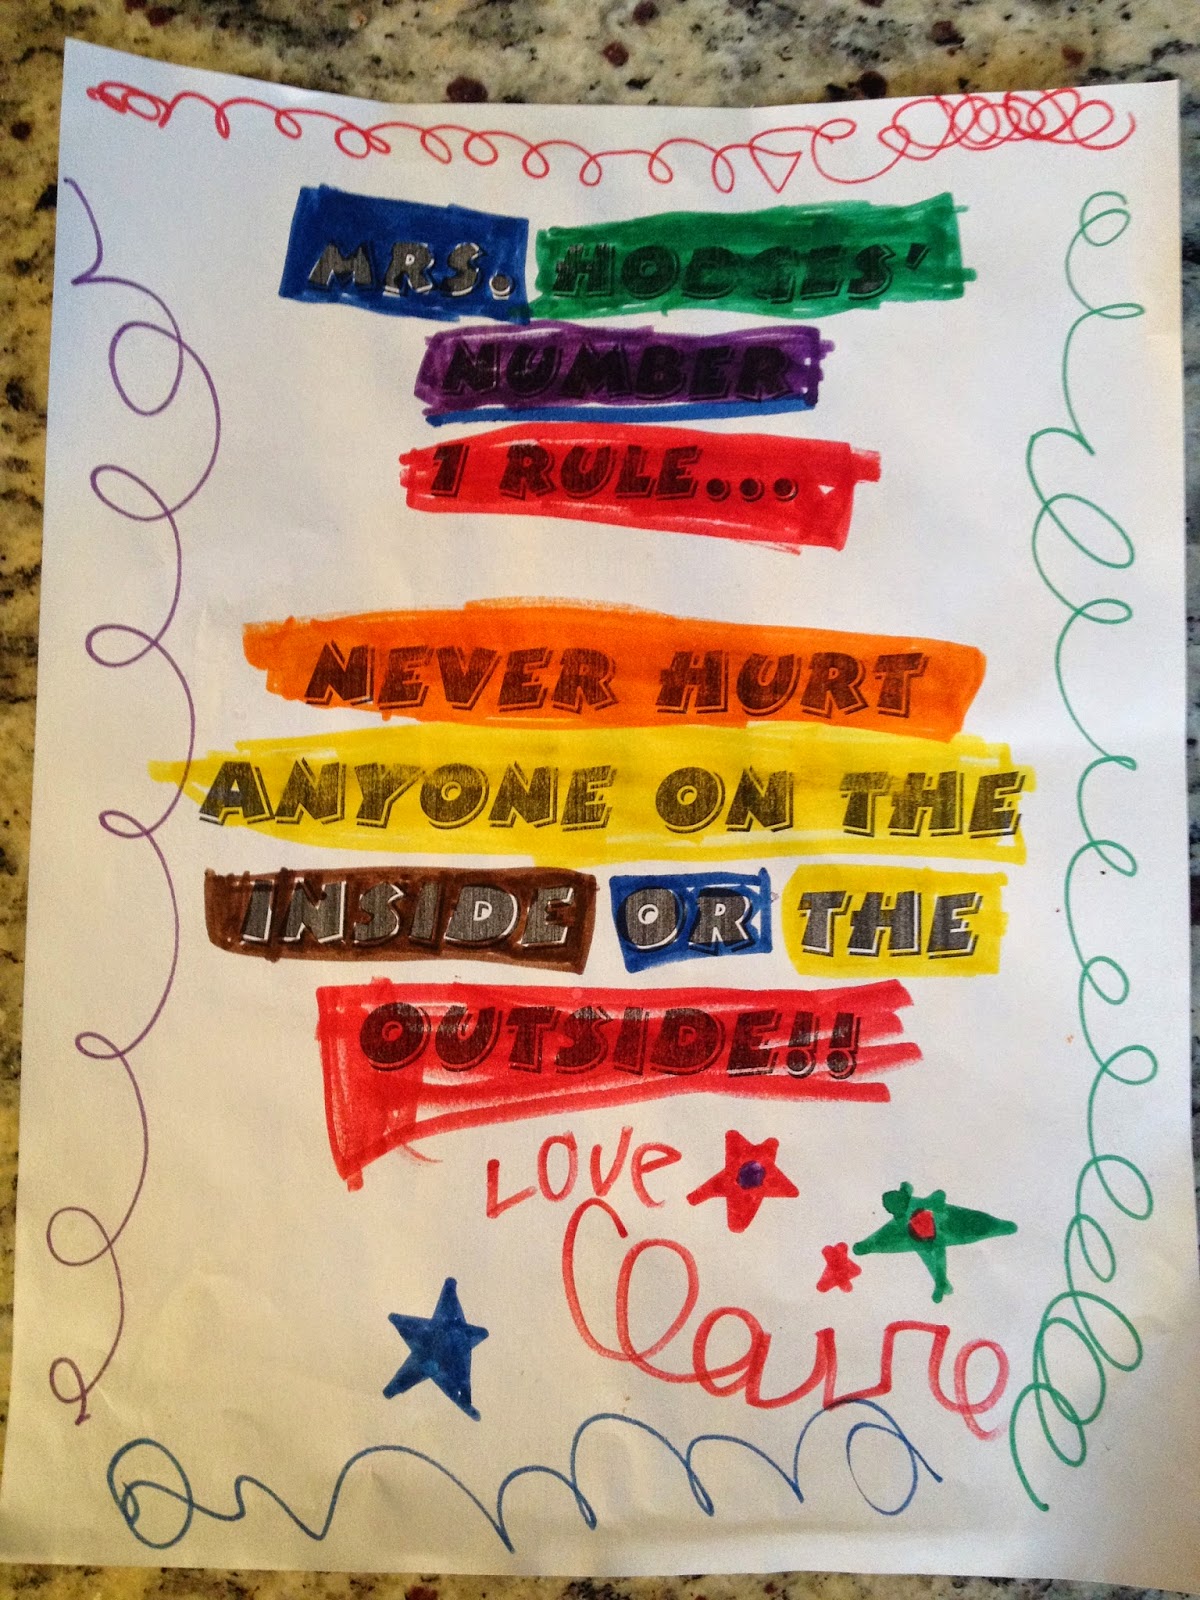 MRS. HODGES'
NUMBER
1 RULE...
NEVER HURT
ANYONE ON THE
INSIDE OR THE
OUTSIDE!!
LOVE
Claire